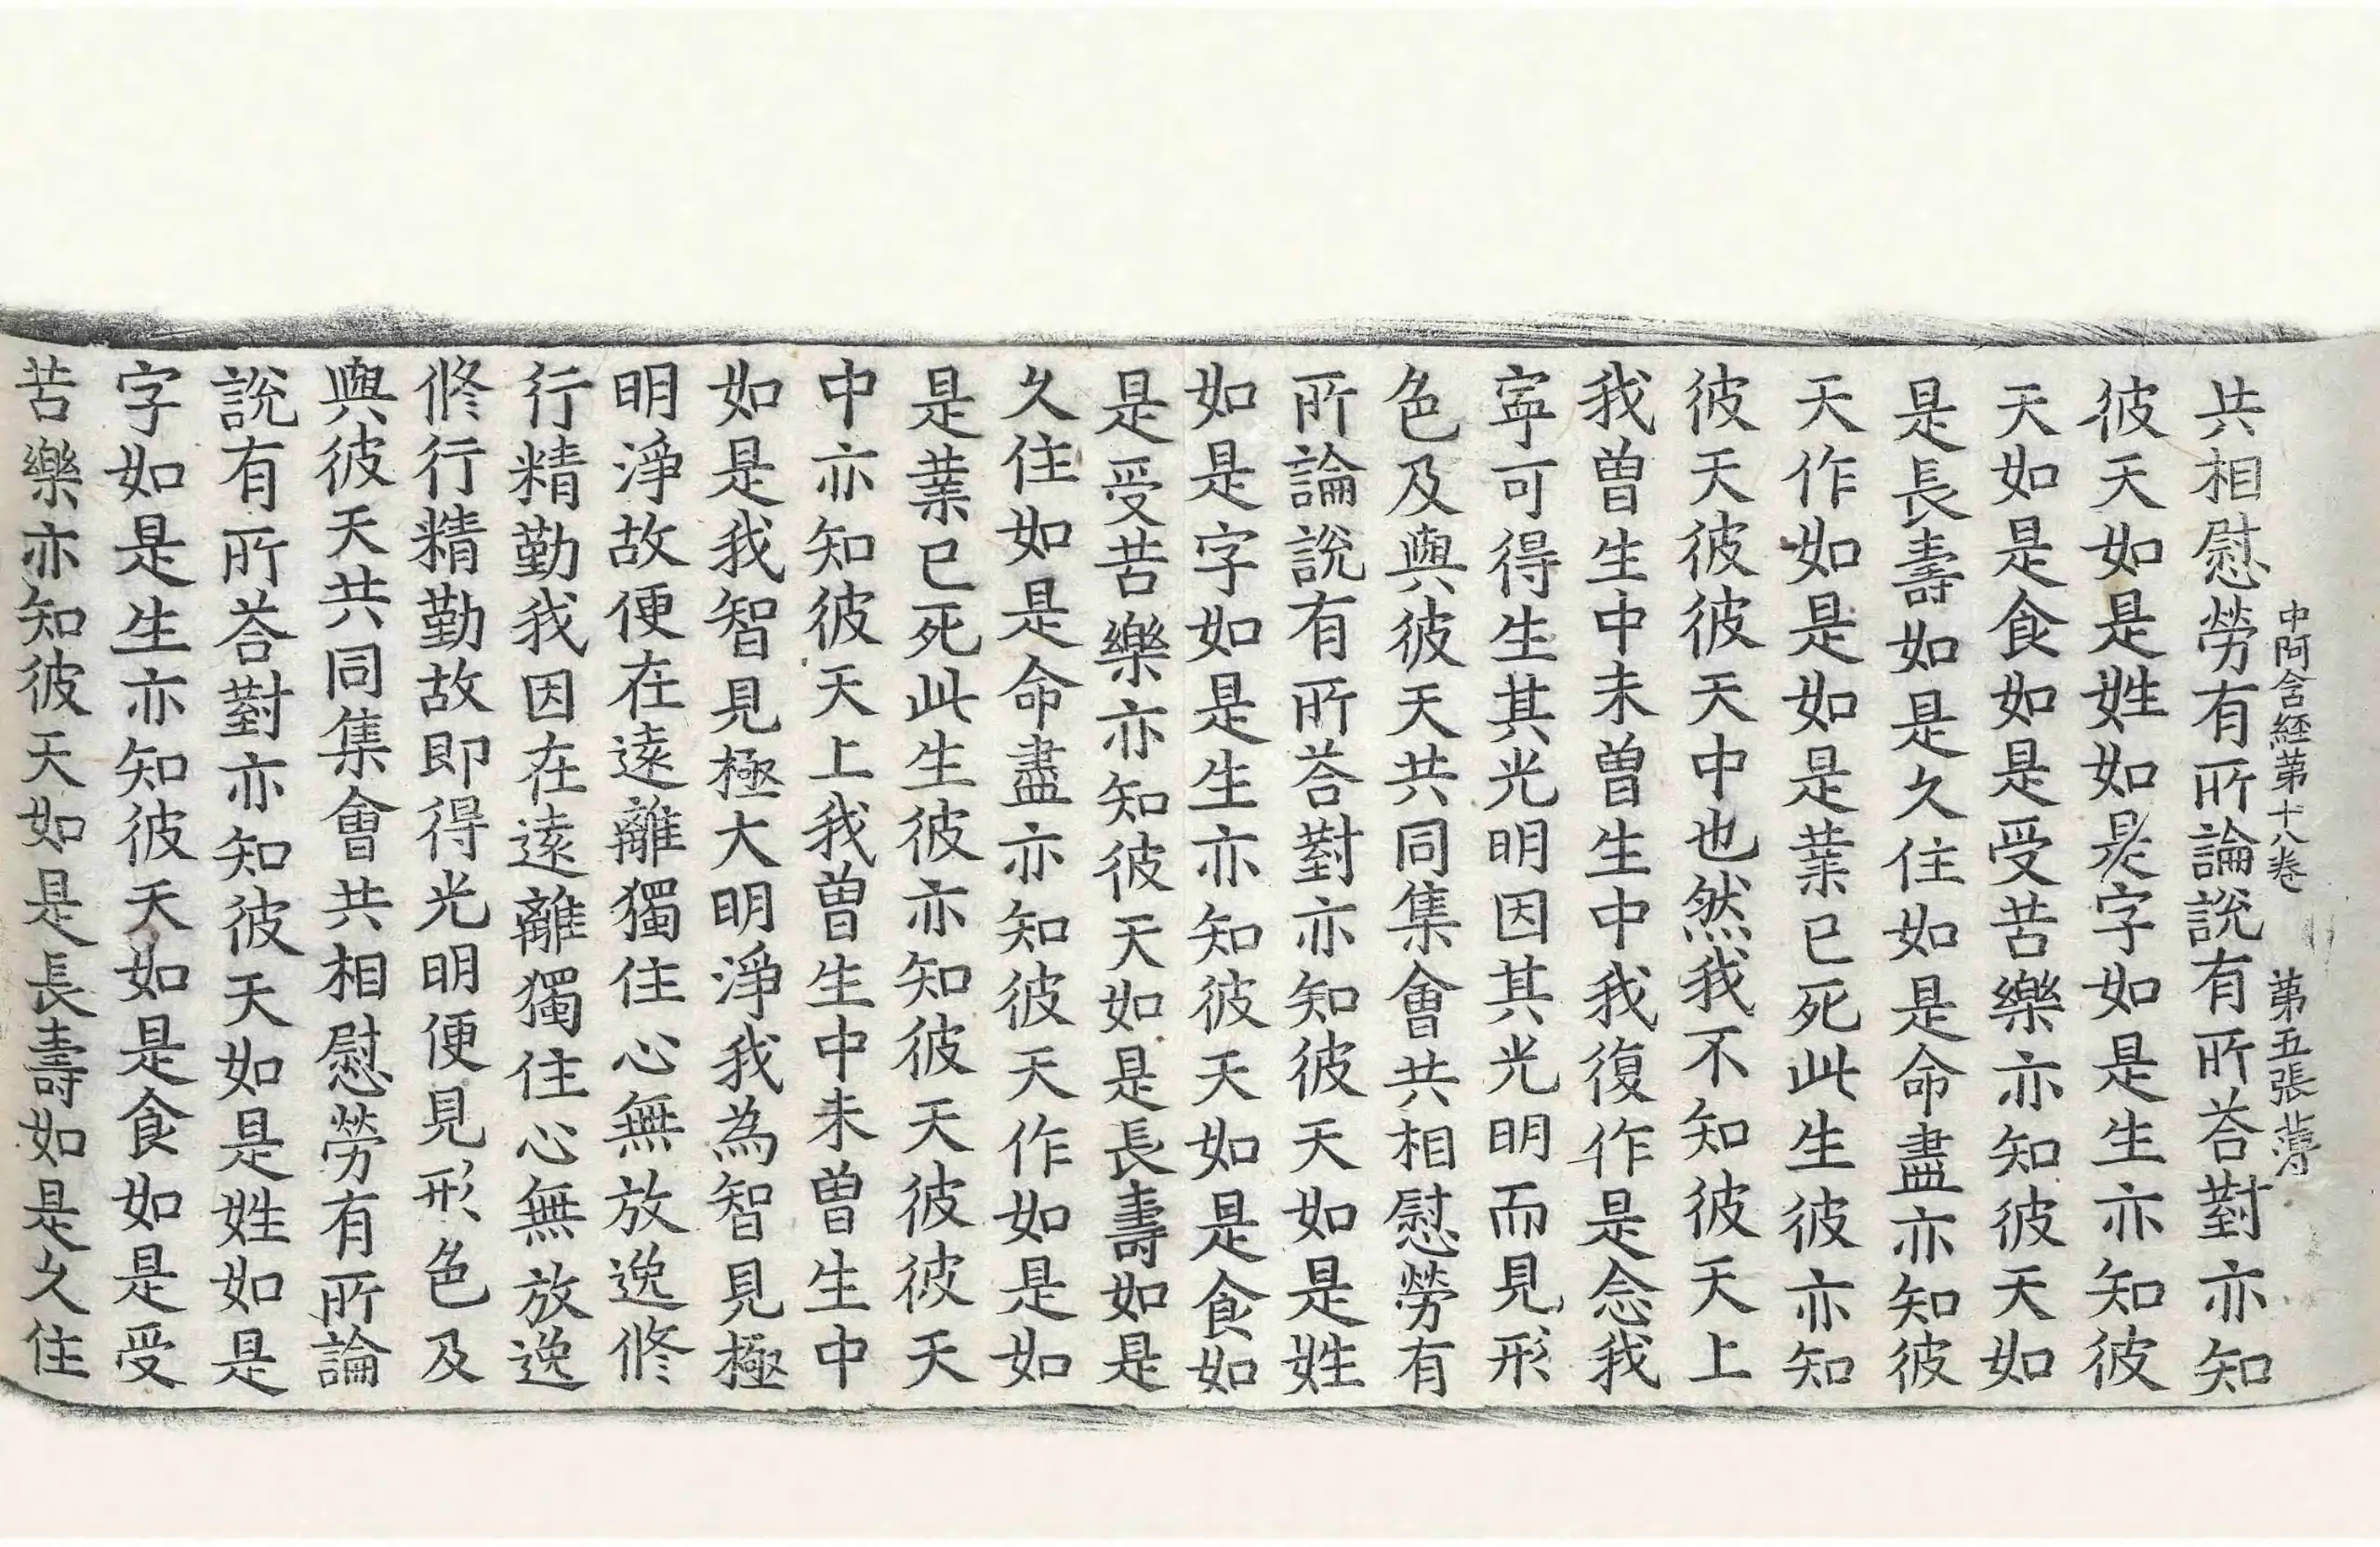 中阿含經第十八卷　第五張薄
共相慰勞有所論說有所荅對亦知
彼天如是姓如是字如是生亦知彼
天如是食如是受苦樂亦知彼天如
是長壽如是久住如是命盡亦知彼
天作如是如是業已死此生彼亦知
彼天彼彼天中也然我不知彼天上
我曾生中未曾生中我復作是念我
寜可得生其光明因其光明而見形
色及與彼天共同集會共相慰勞有
所論說有所荅對亦知彼天如是姓
如是字如是生亦知彼天如是食如
是受苦樂亦知彼天如是長壽如是
久住如是命盡亦知彼天作如是如
是業已死此生彼亦知彼天彼彼天
中亦知彼天上我曾生中未曾生中
如是我智見極大明淨我為智見極
明淨故便在遠離獨住心無放逸修
行精勤我因在遠離獨住心無放逸
修行精勤故即得光明便見形色及
與彼天共同集會共相慰勞有所論
說有所荅對亦知彼天如是姓如是
字如是生亦知彼天如是食如是受
苦樂亦知彼天如是長壽如是久住